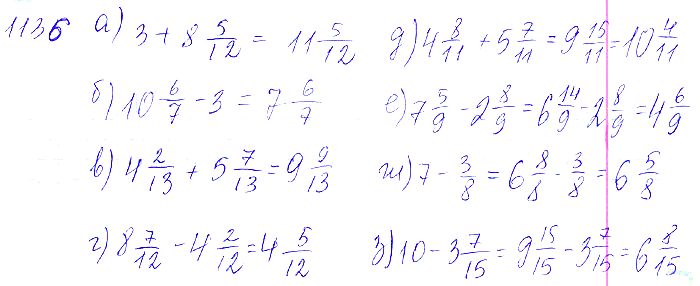 1136 а) 3 + 8 5/12 = 11 5/12 д) 4 8/11 + 5 7/11 = 9 15/11 = 10 4/11
б) 10 6/7 - 3 = 7 6/7 е) 7 5/9 - 2 8/9 = 6 14/9 - 2 8/9 = 4 6/9
в) 4 2/13 + 5 7/13 = 9 9/13 ж) 7 - 3/8 = 6 8/8 - 3/8 = 6 5/8
г) 8 7/12 - 4 2/12 = 4 5/12 з) 10 - 3 7/15 = 9 15/15 - 3 7/15 = 6 8/15